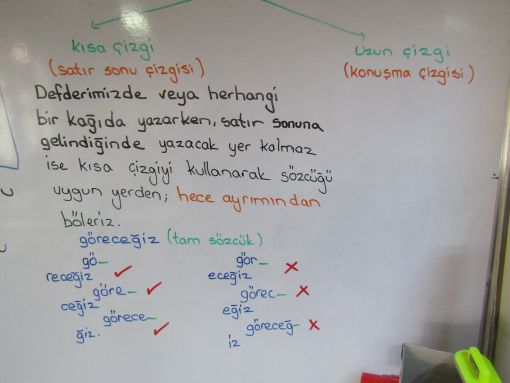 kısa çizgi
(satır sonu çizgisi)
uzun çizgi
(konuşma çizgisi)
Defderimizde veya herhangi
bir kağıda yazarken, satır sonuna
gelindiğinde yazacak yer kalmaz
ise kısa çizgiyi kullanarak sözcüğü
uygun yerden; hece ayrımından
böleriz.
göreceğiz (tam sözcük)
gö-
receğiz ✓
göre- ✓
ceğiz
görece-
ğiz. ✓
gör-
eceğiz ✗
görec- ✗
eğiz
göreceğ- ✗
iz